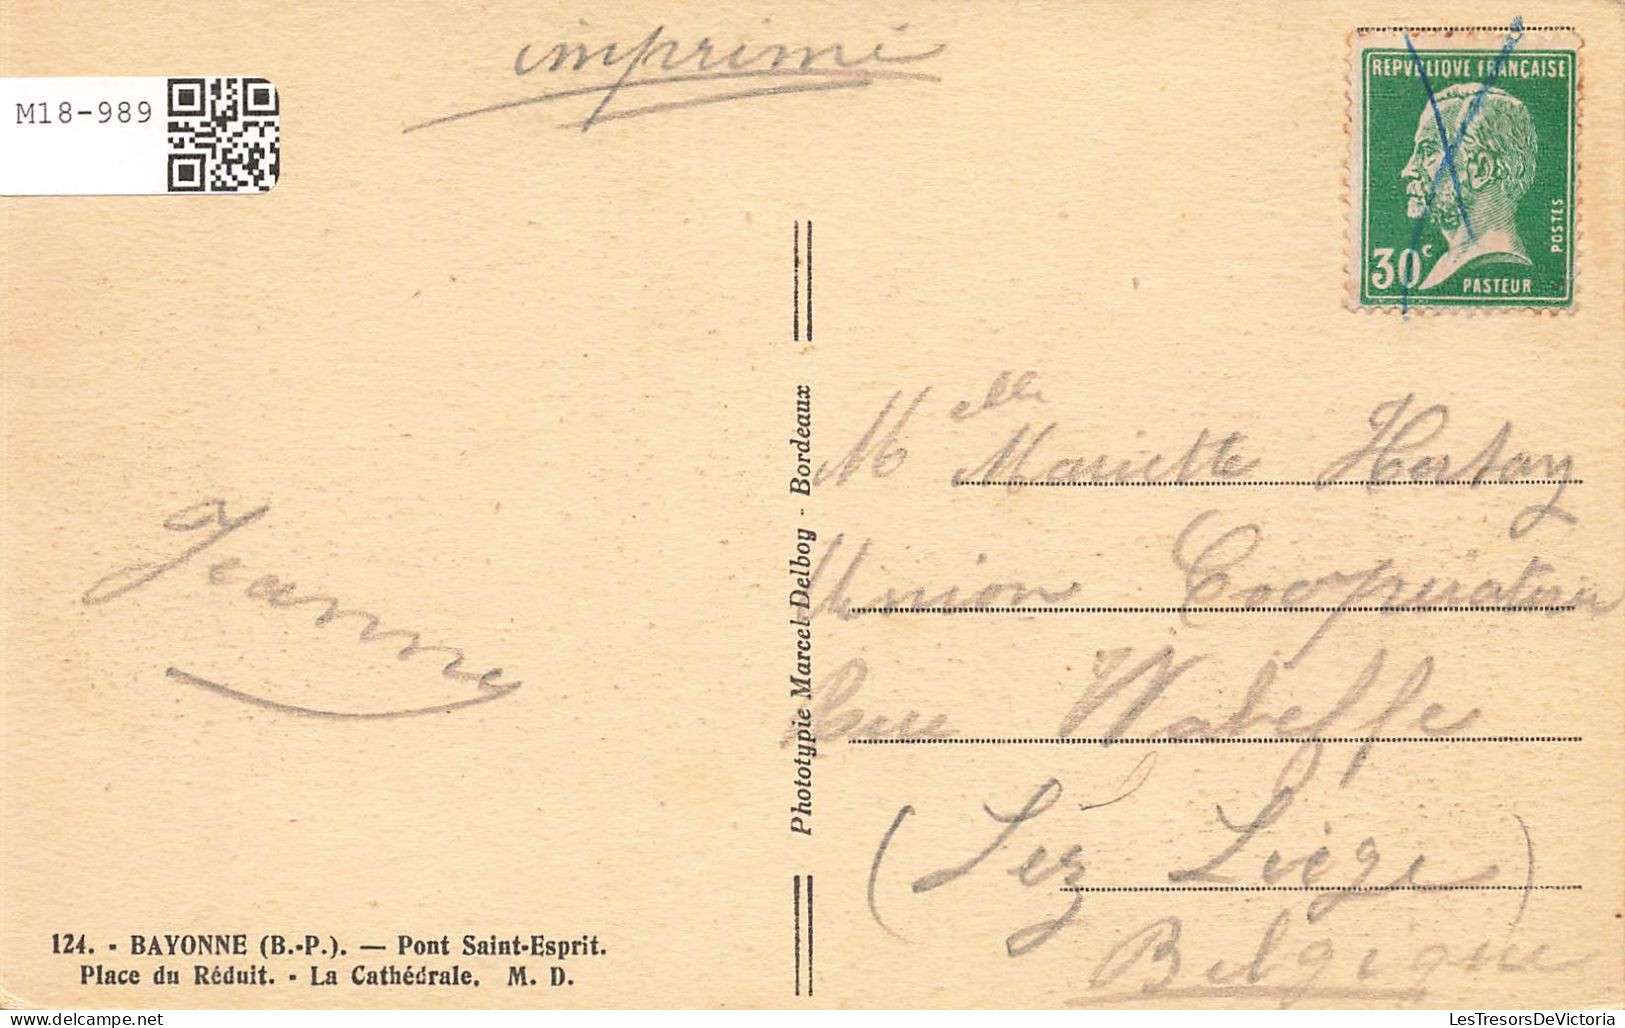 imprimé
M18-989
REPVBLIQVE FRANÇAISE
30c
PASTEUR
POSTES
Jeanne
Phototypie Marcel Delboy - Bordeaux
Melle Mariette Hertay
Union Coopérative
Waleffe
(Lez Liège)
Belgique
124. - BAYONNE (B.-P.). — Pont Saint-Esprit.
Place du Réduit. - La Cathédrale. M. D.
LesTresorsDeVictoria